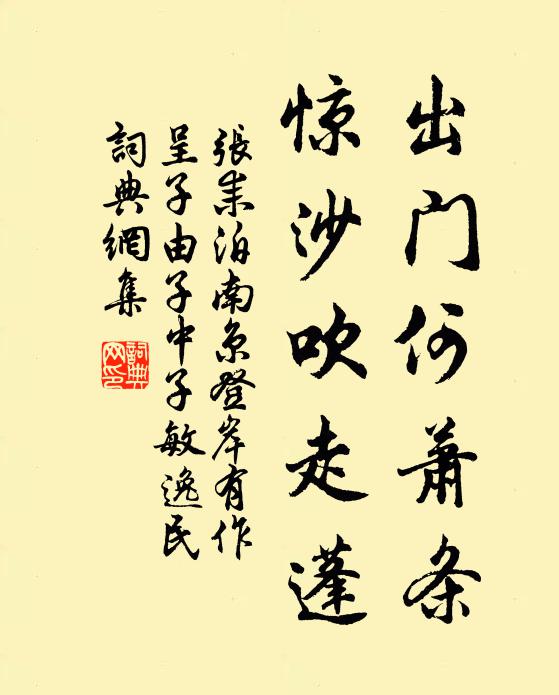 出门何萧条
惊沙吹走蓬
张耒泊南京登岸有作
呈子由子中子敏逸民
词典网集
词典网印